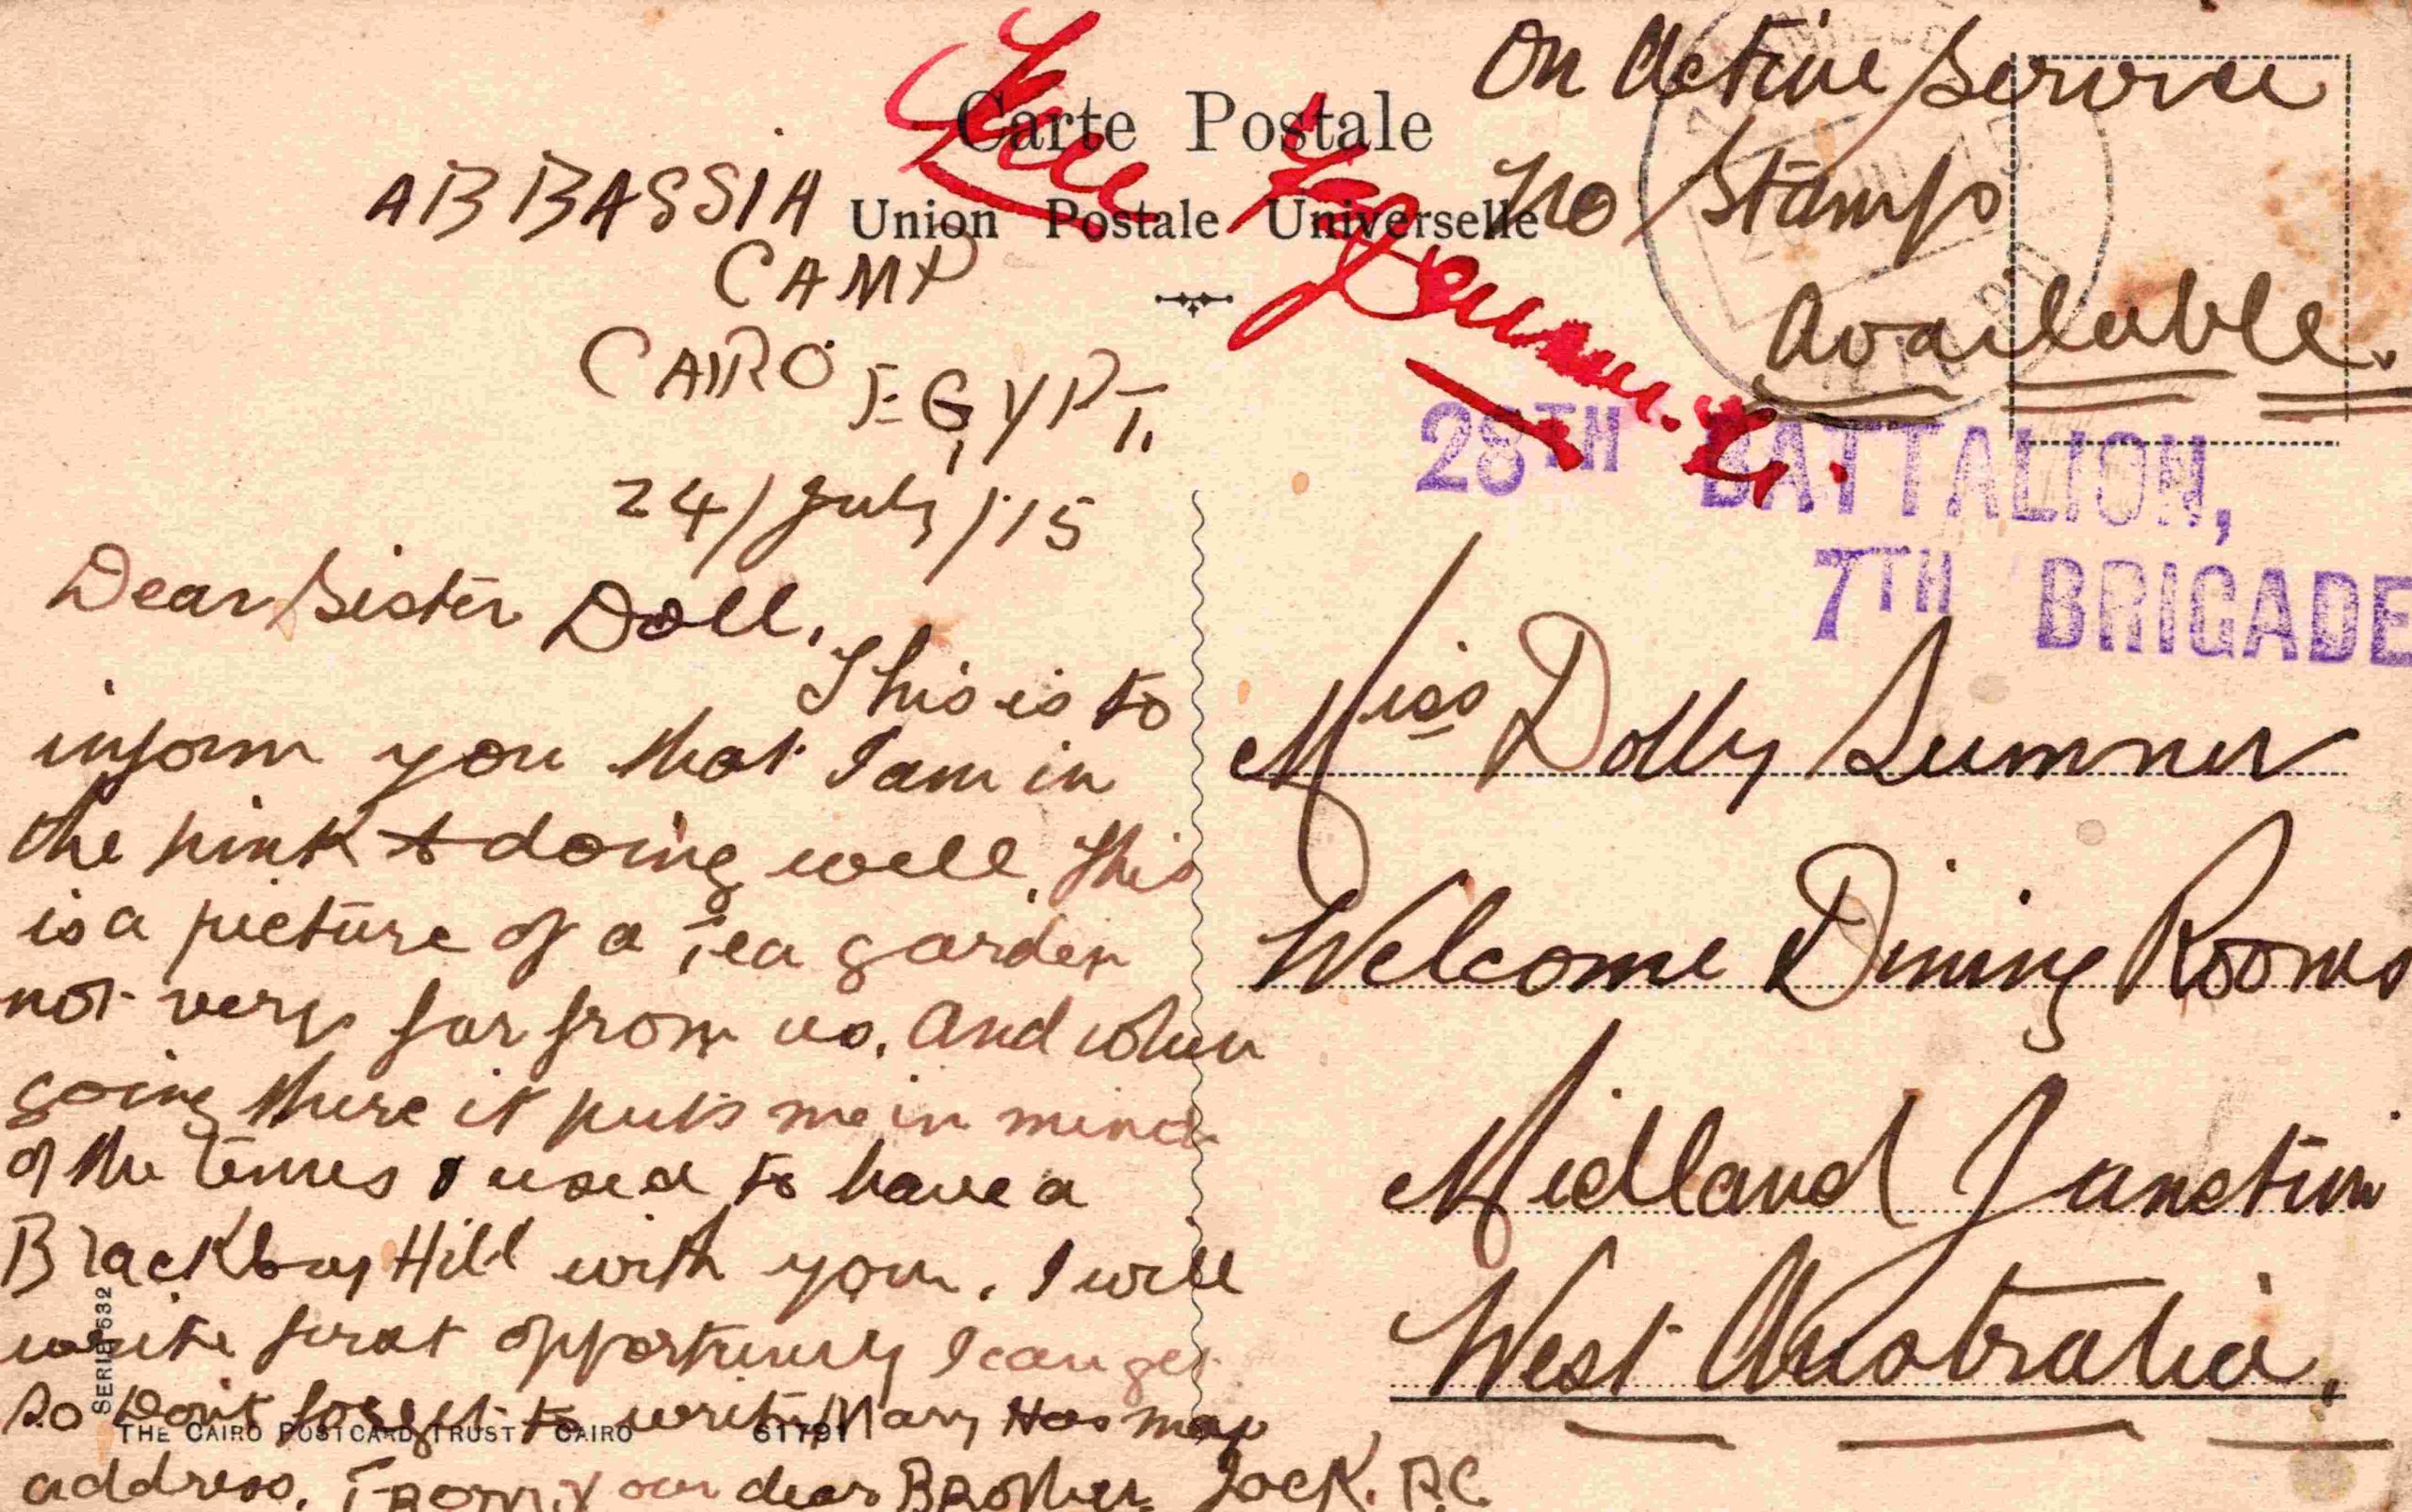 Carte Postale
Union Postale Universelle
On Active Service
No Stamps
Available.
28TH BATTALION,
7TH BRIGADE
ABBASSIA
CAMP
CAIRO EGYPT.
24/July/15
Dear Sister Doll.
This is to
inform you that I am in
the pink & doing well. This
is a picture of a Tea garden
not very far from us. And when
going there it puts me in mind
of the times I used to have a
Blackboy Hill with you. I will
write first opportunity I can get
so Dont forget to write Mary Has my
address. From your dear Brother Jock. P.C.
Miss Dolly Sumner
Welcome Dining Rooms
Midland Junction
West Australia.
SERIE 632
THE CAIRO POSTCARD TRUST CAIRO 61791